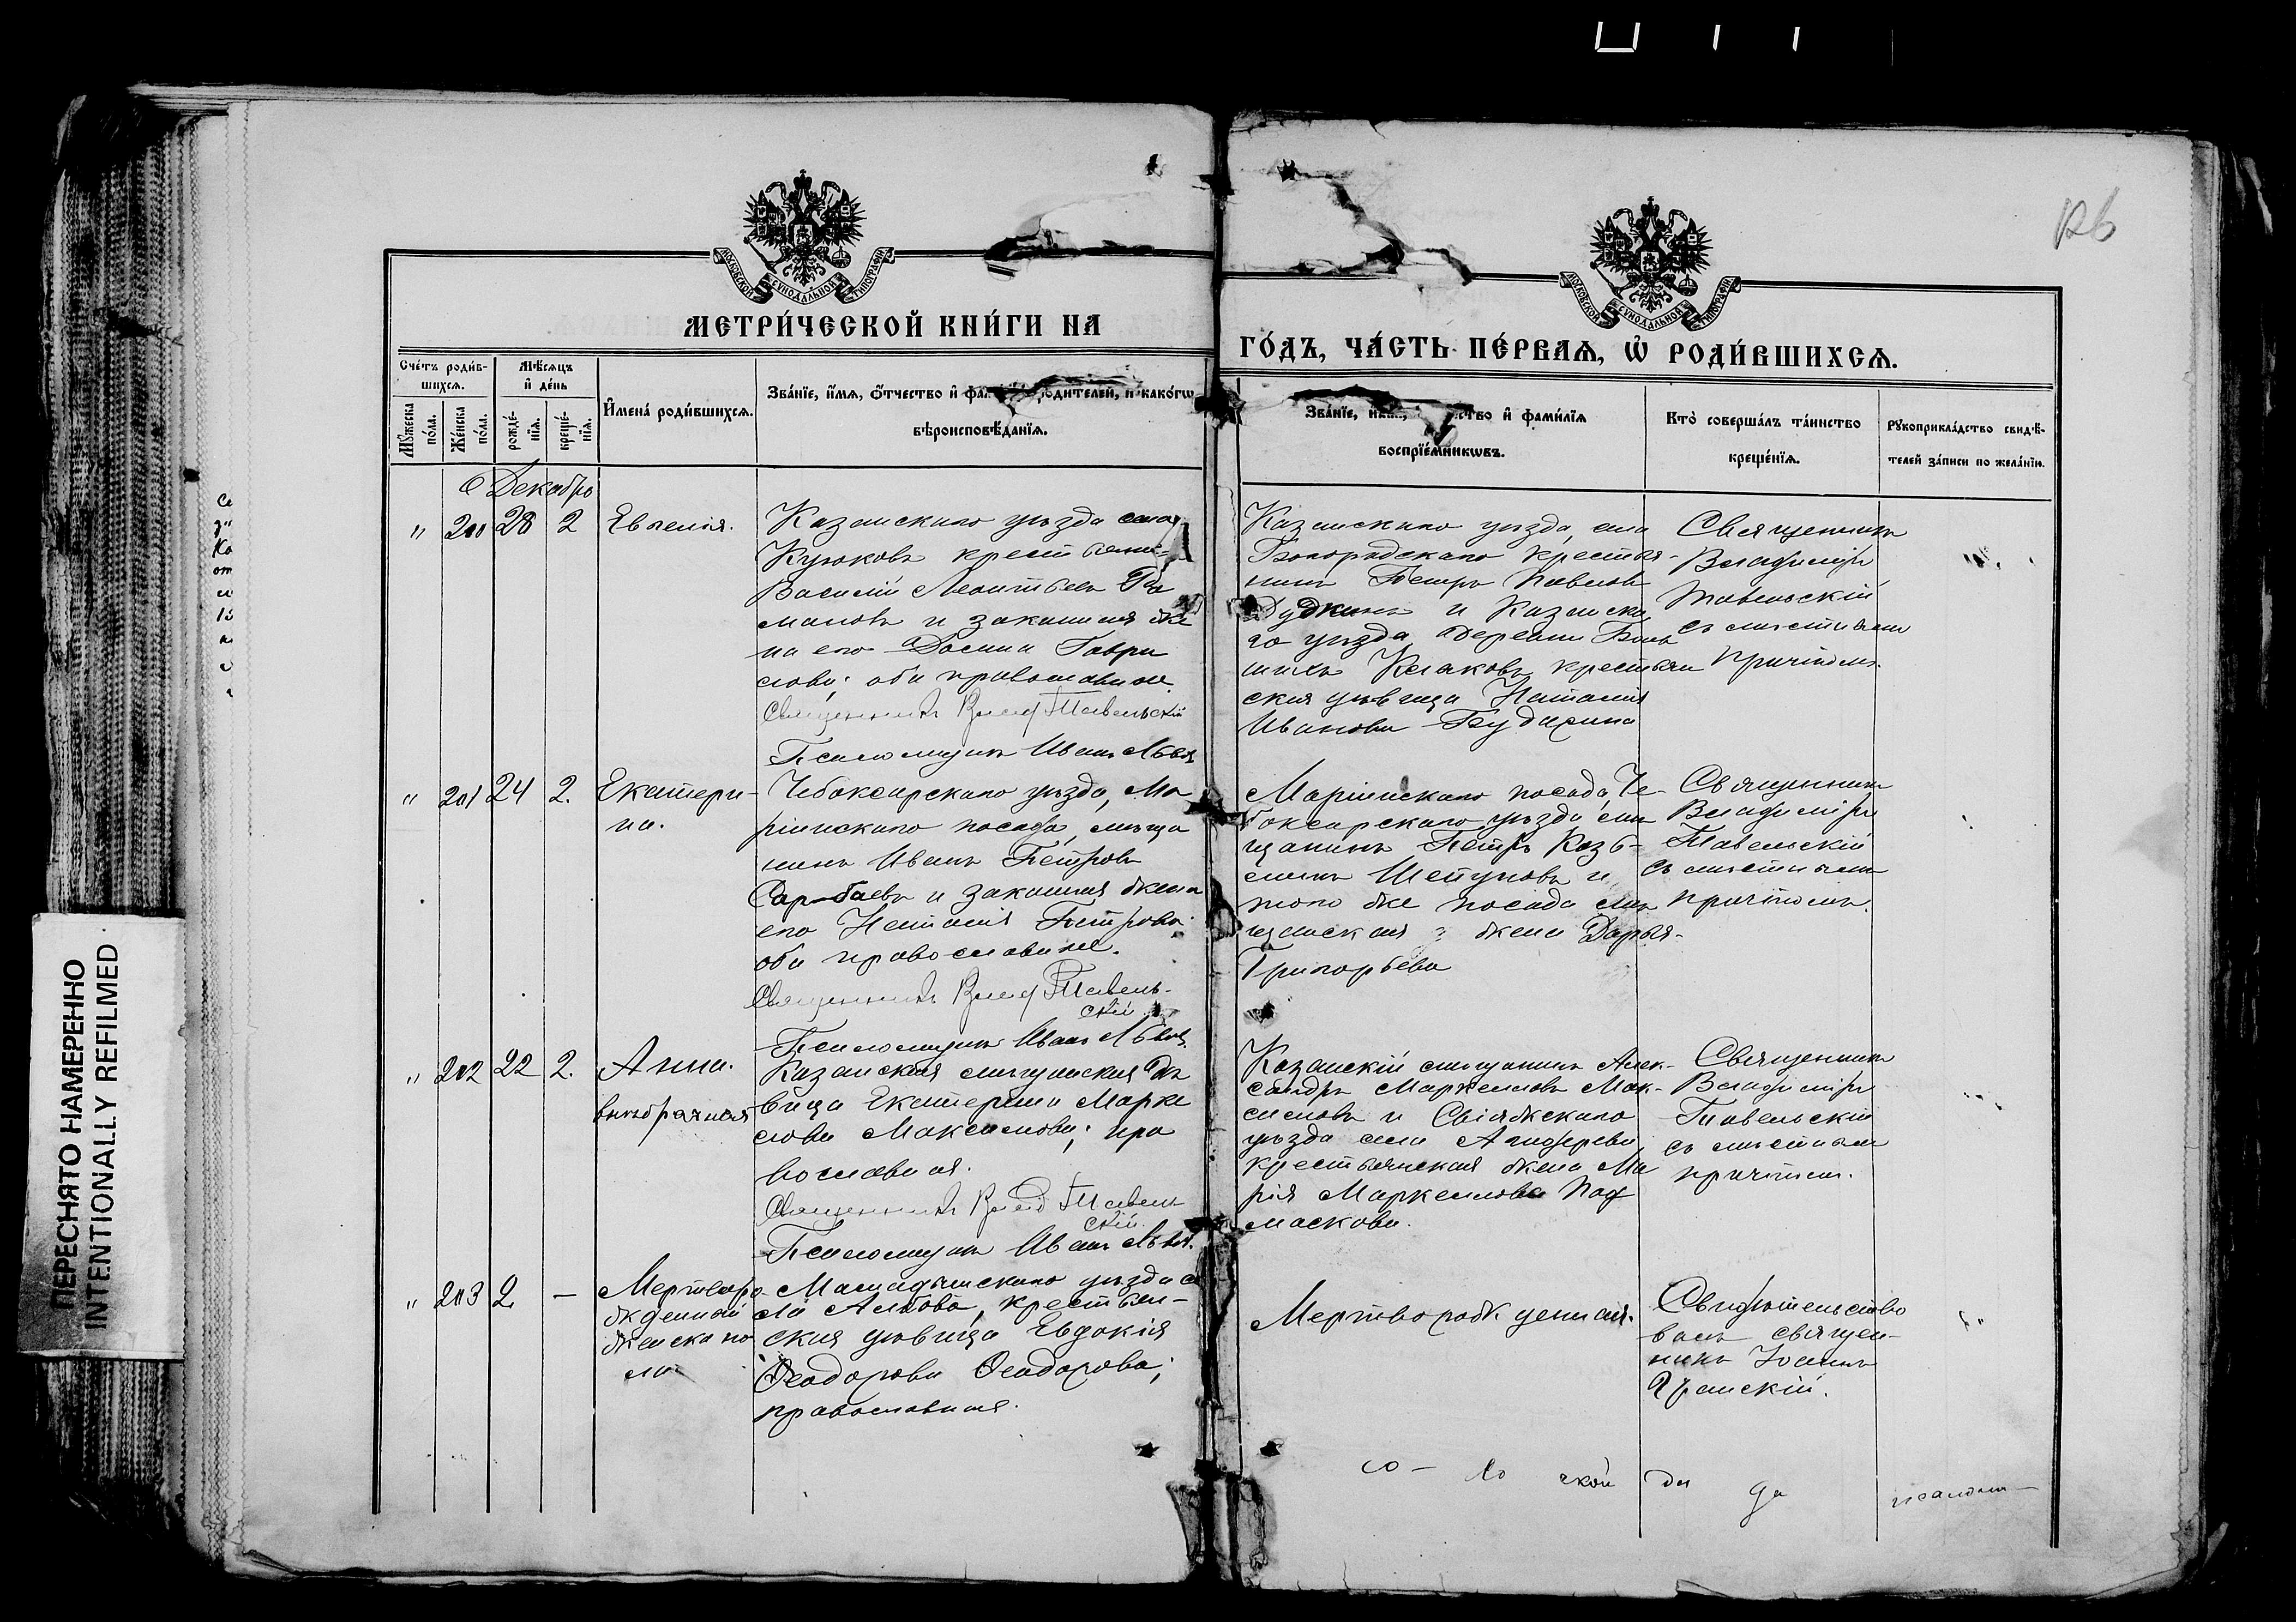 МЕТРИ́ЧЕСКОЙ КНИ́ГИ НА
ГО́ДЪ, ЧА́СТЬ ПЕ́РВАѦ, Ѡ҆ РОДИ́ВШИХСѦ.
Сче́тъ роди́в-
шихсѧ.
Мꙋжеска по́ла.
Же́нска по́ла.
Мѣ́сѧцъ
и҆ де́нь
рожде́-
нїѧ.
креще́-
нїѧ.
И҆мена̀ роди́вшихсѧ.
Зва́нїе, и҆́мѧ, ѻ҆́тчество и҆ родителей, и како́гѡ
вѣроисповѣ́данїѧ.
Зва́нїе, и҆ фами́лїѧ
воспрїе́мникѡвъ.
Кто̀ соверша́лъ та́инство
креще́нїѧ.
Рꙋкоприкла́дство свидѣ́-
телей за́писи по жела́нїю.
Декабрь
" 200 28 2 Евгенія.
Казанскаго уѣзда села
Куюковъ крестьянинъ
Василій Леонтьевъ Ро
мановъ и законная же
на его Гаври
лова; оба православные.
Священникъ Влад Тавельскій
Псаломщикъ Иванъ Львовъ
Казанскаго уѣзда, села
Богородскаго крестья-
нинъ Петръ Павловъ
Дудкинъ и Казанска
го уѣзда деревни
крестьян
ская дѣвица Наталія
Иванова
Священникъ
Владиміръ
Тавельскій
съ мѣстнымъ
причтомъ.
" 201 24 2. Екатери-
на.
Чебоксарскаго уѣзда, Ма
ріинскаго посада, мѣща
нинъ Иванъ Петровъ
и законная жена
его Наталія Петрова;
оба православные.
Священникъ Влад Тавель-
скій
Псаломщикъ Иванъ Львовъ.
Маріинскаго посада, Че-
боксарскаго уѣзда мѣ
щанинъ Петръ Козь-
минъ и
того же посада мѣ
щанская жена Дарья
Григорьева
Священникъ
Владиміръ
Тавельскій
съ мѣстнымъ
причтомъ.
" 202 22 2. Анна.
внѣбрачная
Казанская мѣщанская дѣ
вица Екатерина Марке
лова Максимова; пра
вославная.
Священникъ Влад Тавель
скій
Псаломщикъ Иванъ Львовъ.
Казанскій мѣщанинъ Алек-
сандръ Маркеловъ Мак-
симовъ и Свіяжскаго
уѣзда села
крестьянская жена Ма
рія Маркеллова Под
маскова.
Священникъ
Владиміръ
Тавельскій
съ мѣстнымъ
причтомъ.
" 203 2. — Мертворо
жденный
женска по
ла
Мамадышскаго уѣзда се
ла крестьян-
ская дѣвица Евдокія
Ѳеодорова Ѳеодорова;
православная.
Мертворожденная.
Свидѣтельство
валъ священ-
никъ Іоаннъ
ПЕРЕСНЯТО НАМЕРЕННО
INTENTIONALLY REFILMED